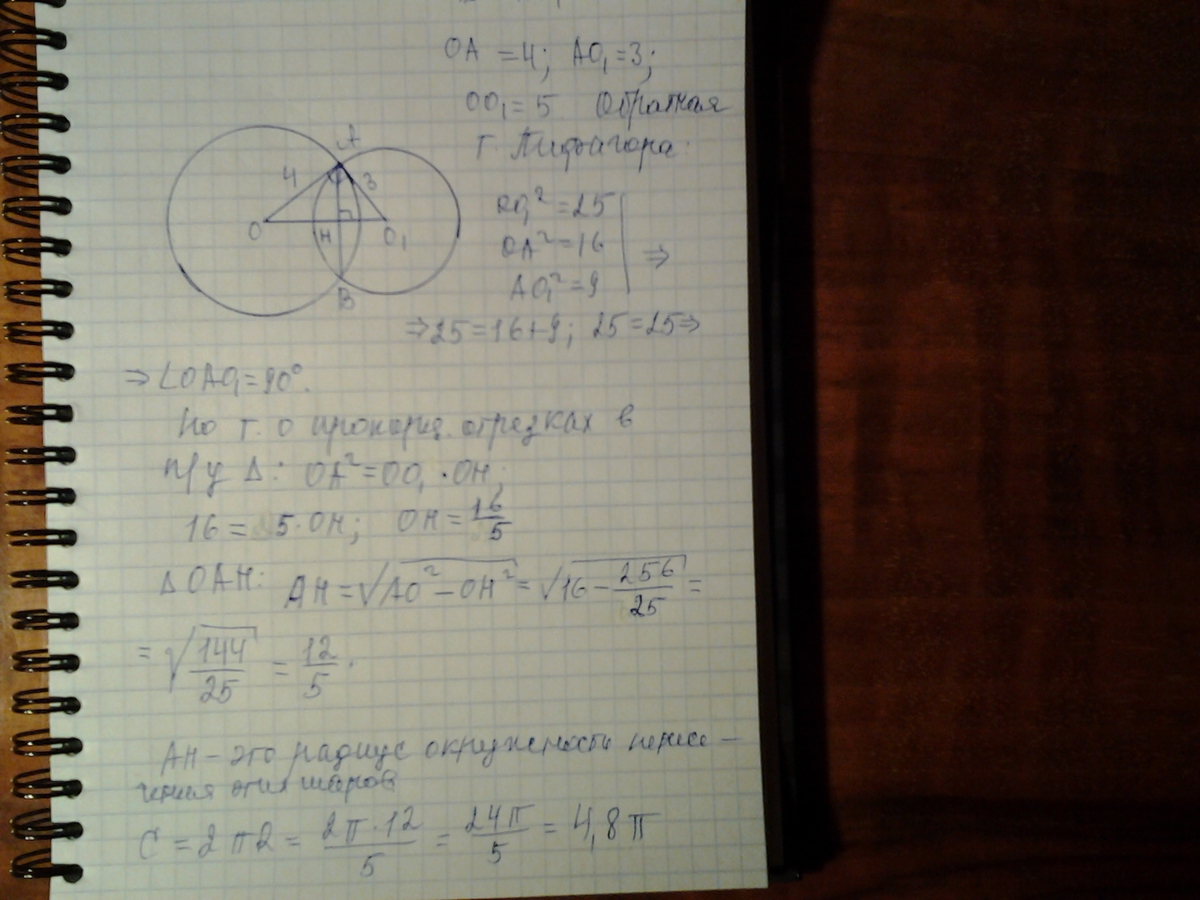 OA = 4; AO₁ = 3;
OO₁ = 5 Обратная
т. Пифагора:
A
4 3
O H O₁
B
OO₁² = 25
OA² = 16 ⇒
AO₁² = 9
⇒ 25 = 16 + 9; 25 = 25 ⇒
⇒ ∠OAO₁ = 90°.
По т. о пропорц. отрезках в
п/у Δ: OA² = OO₁ · OH;
16 = 5·OH; OH = 16/5
ΔOAH: AH = √(AO² − OH²) = √(16 − 256/25) =
= √(144/25) = 12/5.
AH – это радиус окружность пересе –
чения этих шаров
C = 2πR = 2π·12/5 = 24π/5 = 4,8π